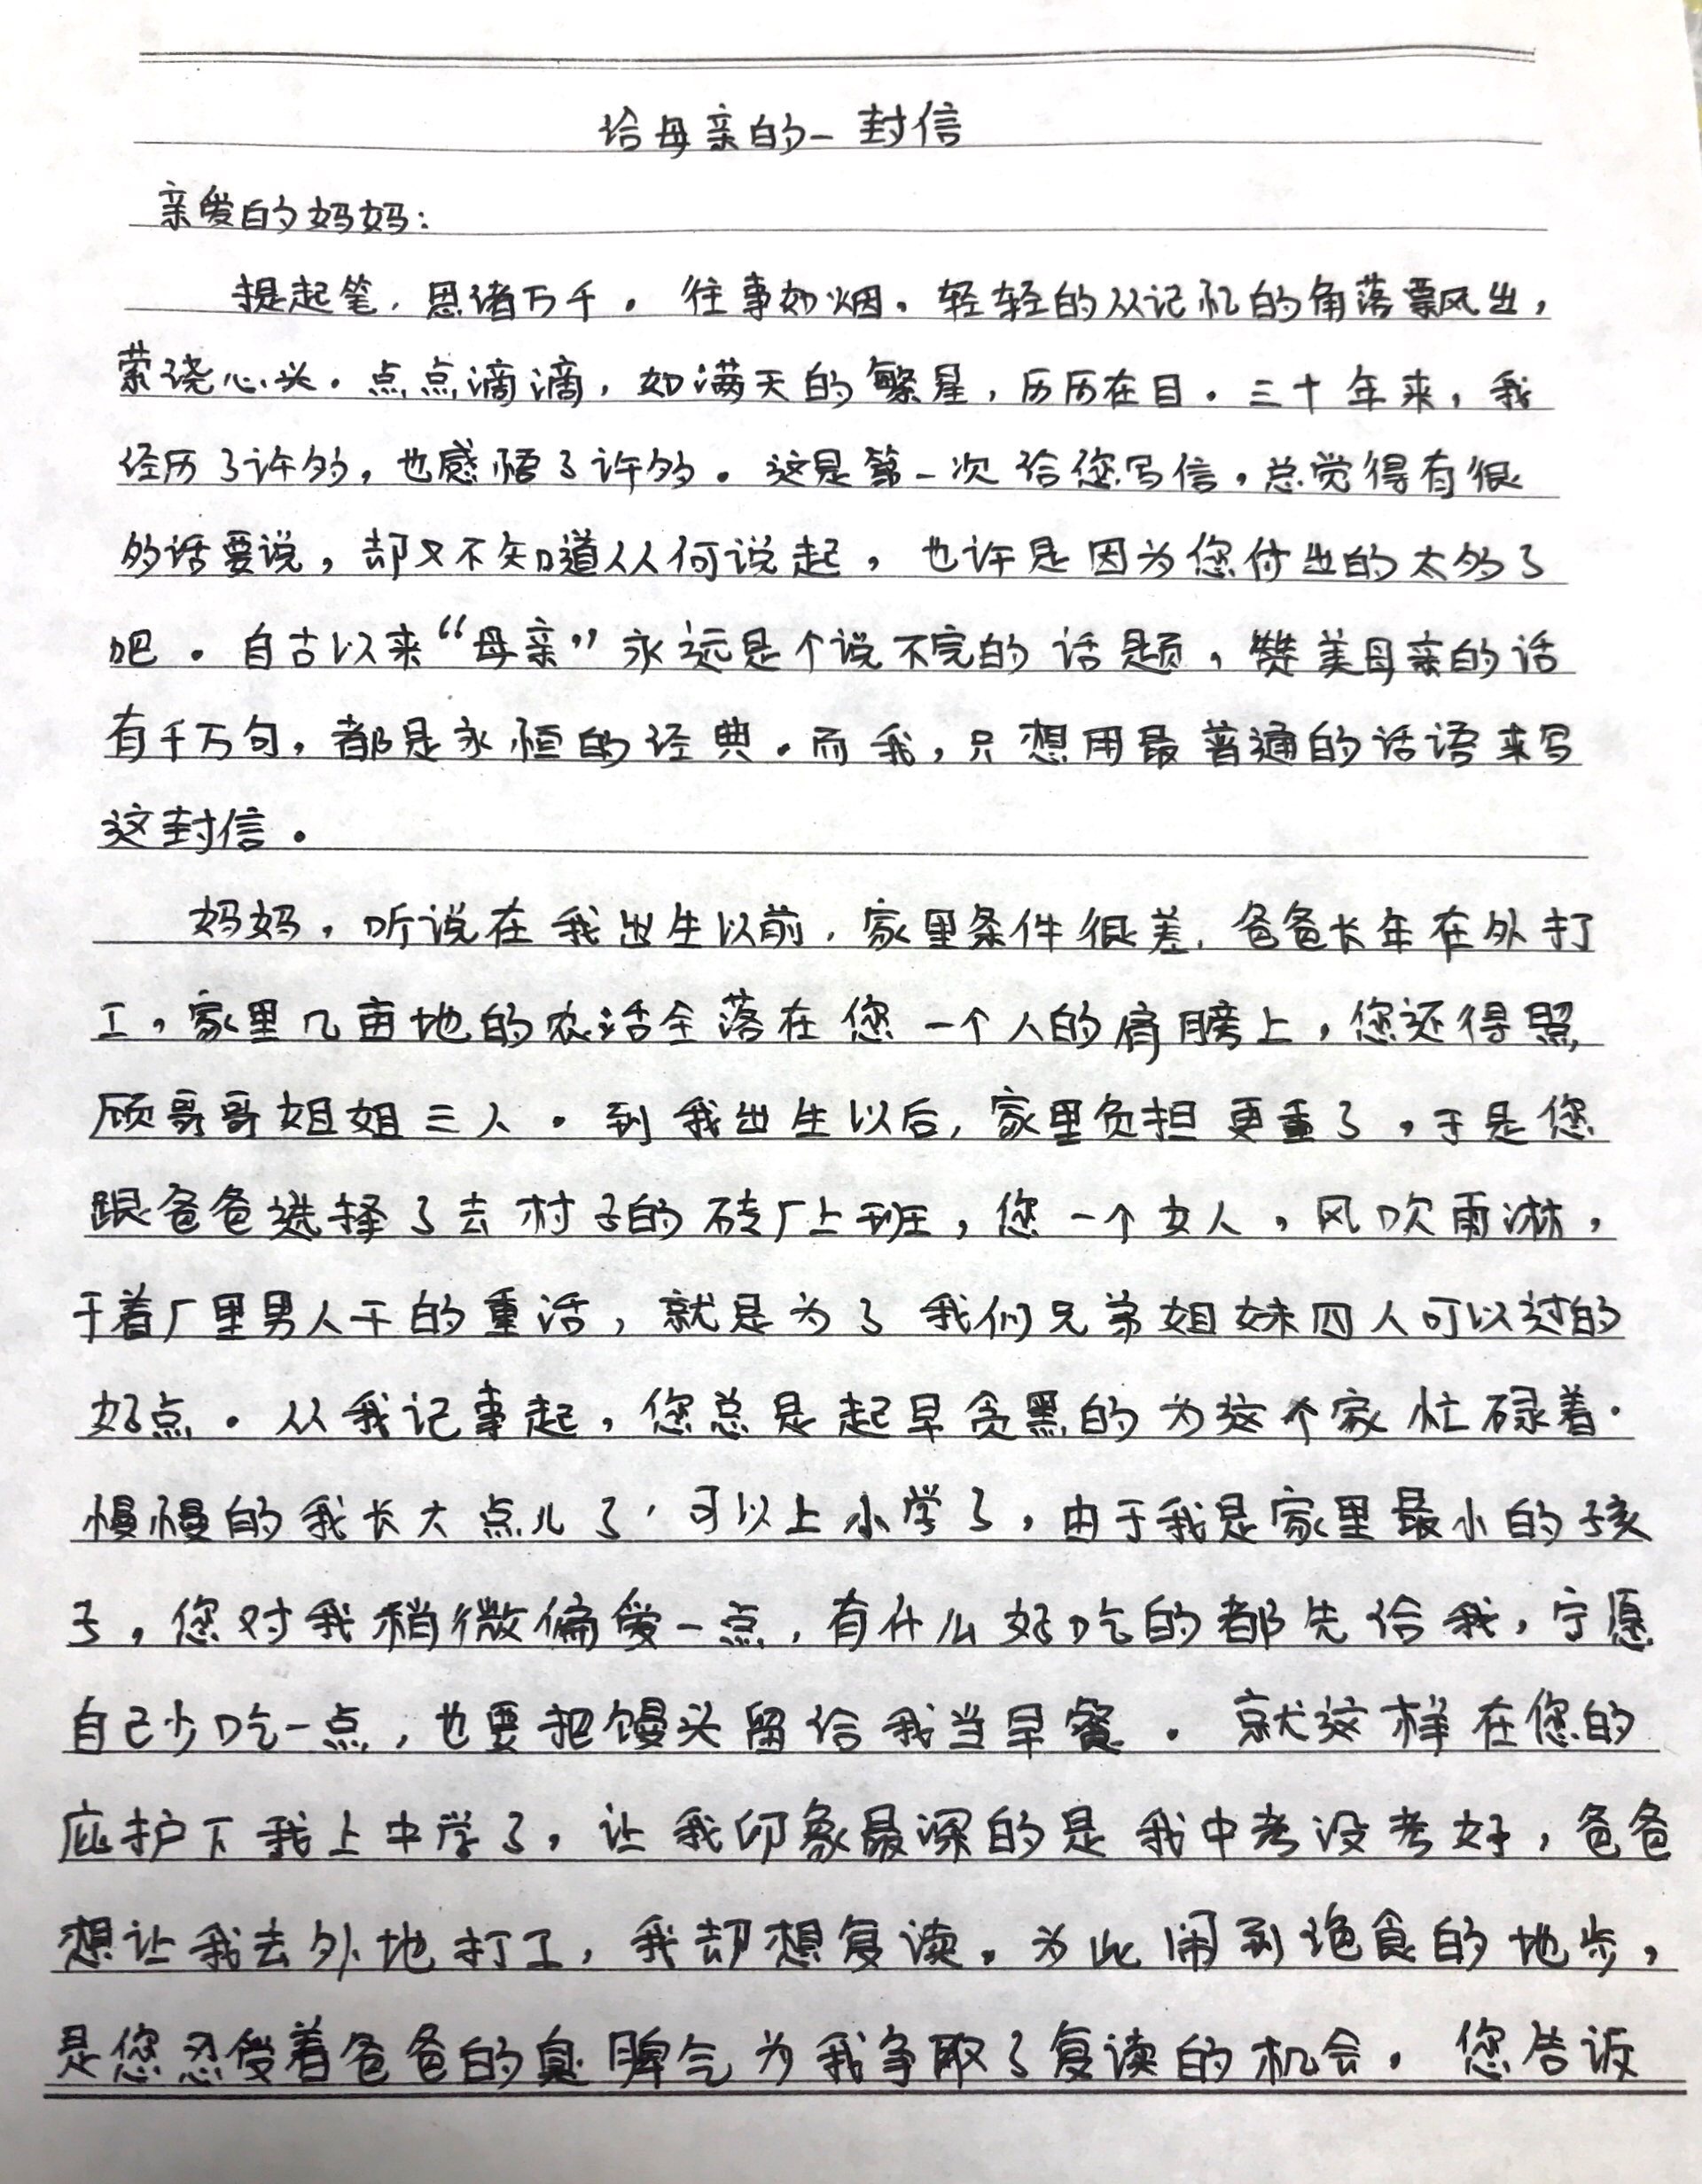 给母亲的一封信
亲爱的妈妈：
提起笔，思绪万千。往事如烟。轻轻的从记忆的角落飘出，
萦绕心头。点点滴滴，如满天的繁星，历历在目。三十年来，我
经历了许多，也感悟了许多。这是第一次给您写信，总觉得有很
多话要说，却又不知道从何说起，也许是因为您付出的太多了
吧。自古以来“母亲”永远是个说不完的话题，赞美母亲的话
有千万句，都是永恒的经典。而我，只想用最普通的话语来写
这封信。
妈妈，听说在我出生以前，家里条件很差，爸爸长年在外打
工，家里几亩地的农活全落在您一个人的肩膀上，您还得照
顾哥哥姐姐三人。到我出生以后，家里负担更重了，于是您
跟爸爸选择了去村子的砖厂上班，您一个女人，风吹雨淋，
干着厂里男人干的重活，就是为了我们兄弟姐妹四人可以过的
好点。从我记事起，您总是起早贪黑的为这个家忙碌着.
慢慢的我长大点儿了，可以上小学了，由于我是家里最小的孩
子，您对我稍微偏爱一点，有什么好吃的都先给我，宁愿
自己少吃一点，也要把馒头留给我当早餐。就这样在您的
庇护下我上中学了，让我印象最深的是我中考没考好，爸爸
想让我去外地打工，我却想复读。为此闹到绝食的地步，
是您忍受着爸爸的臭脾气为我争取了复读的机会。您告诉